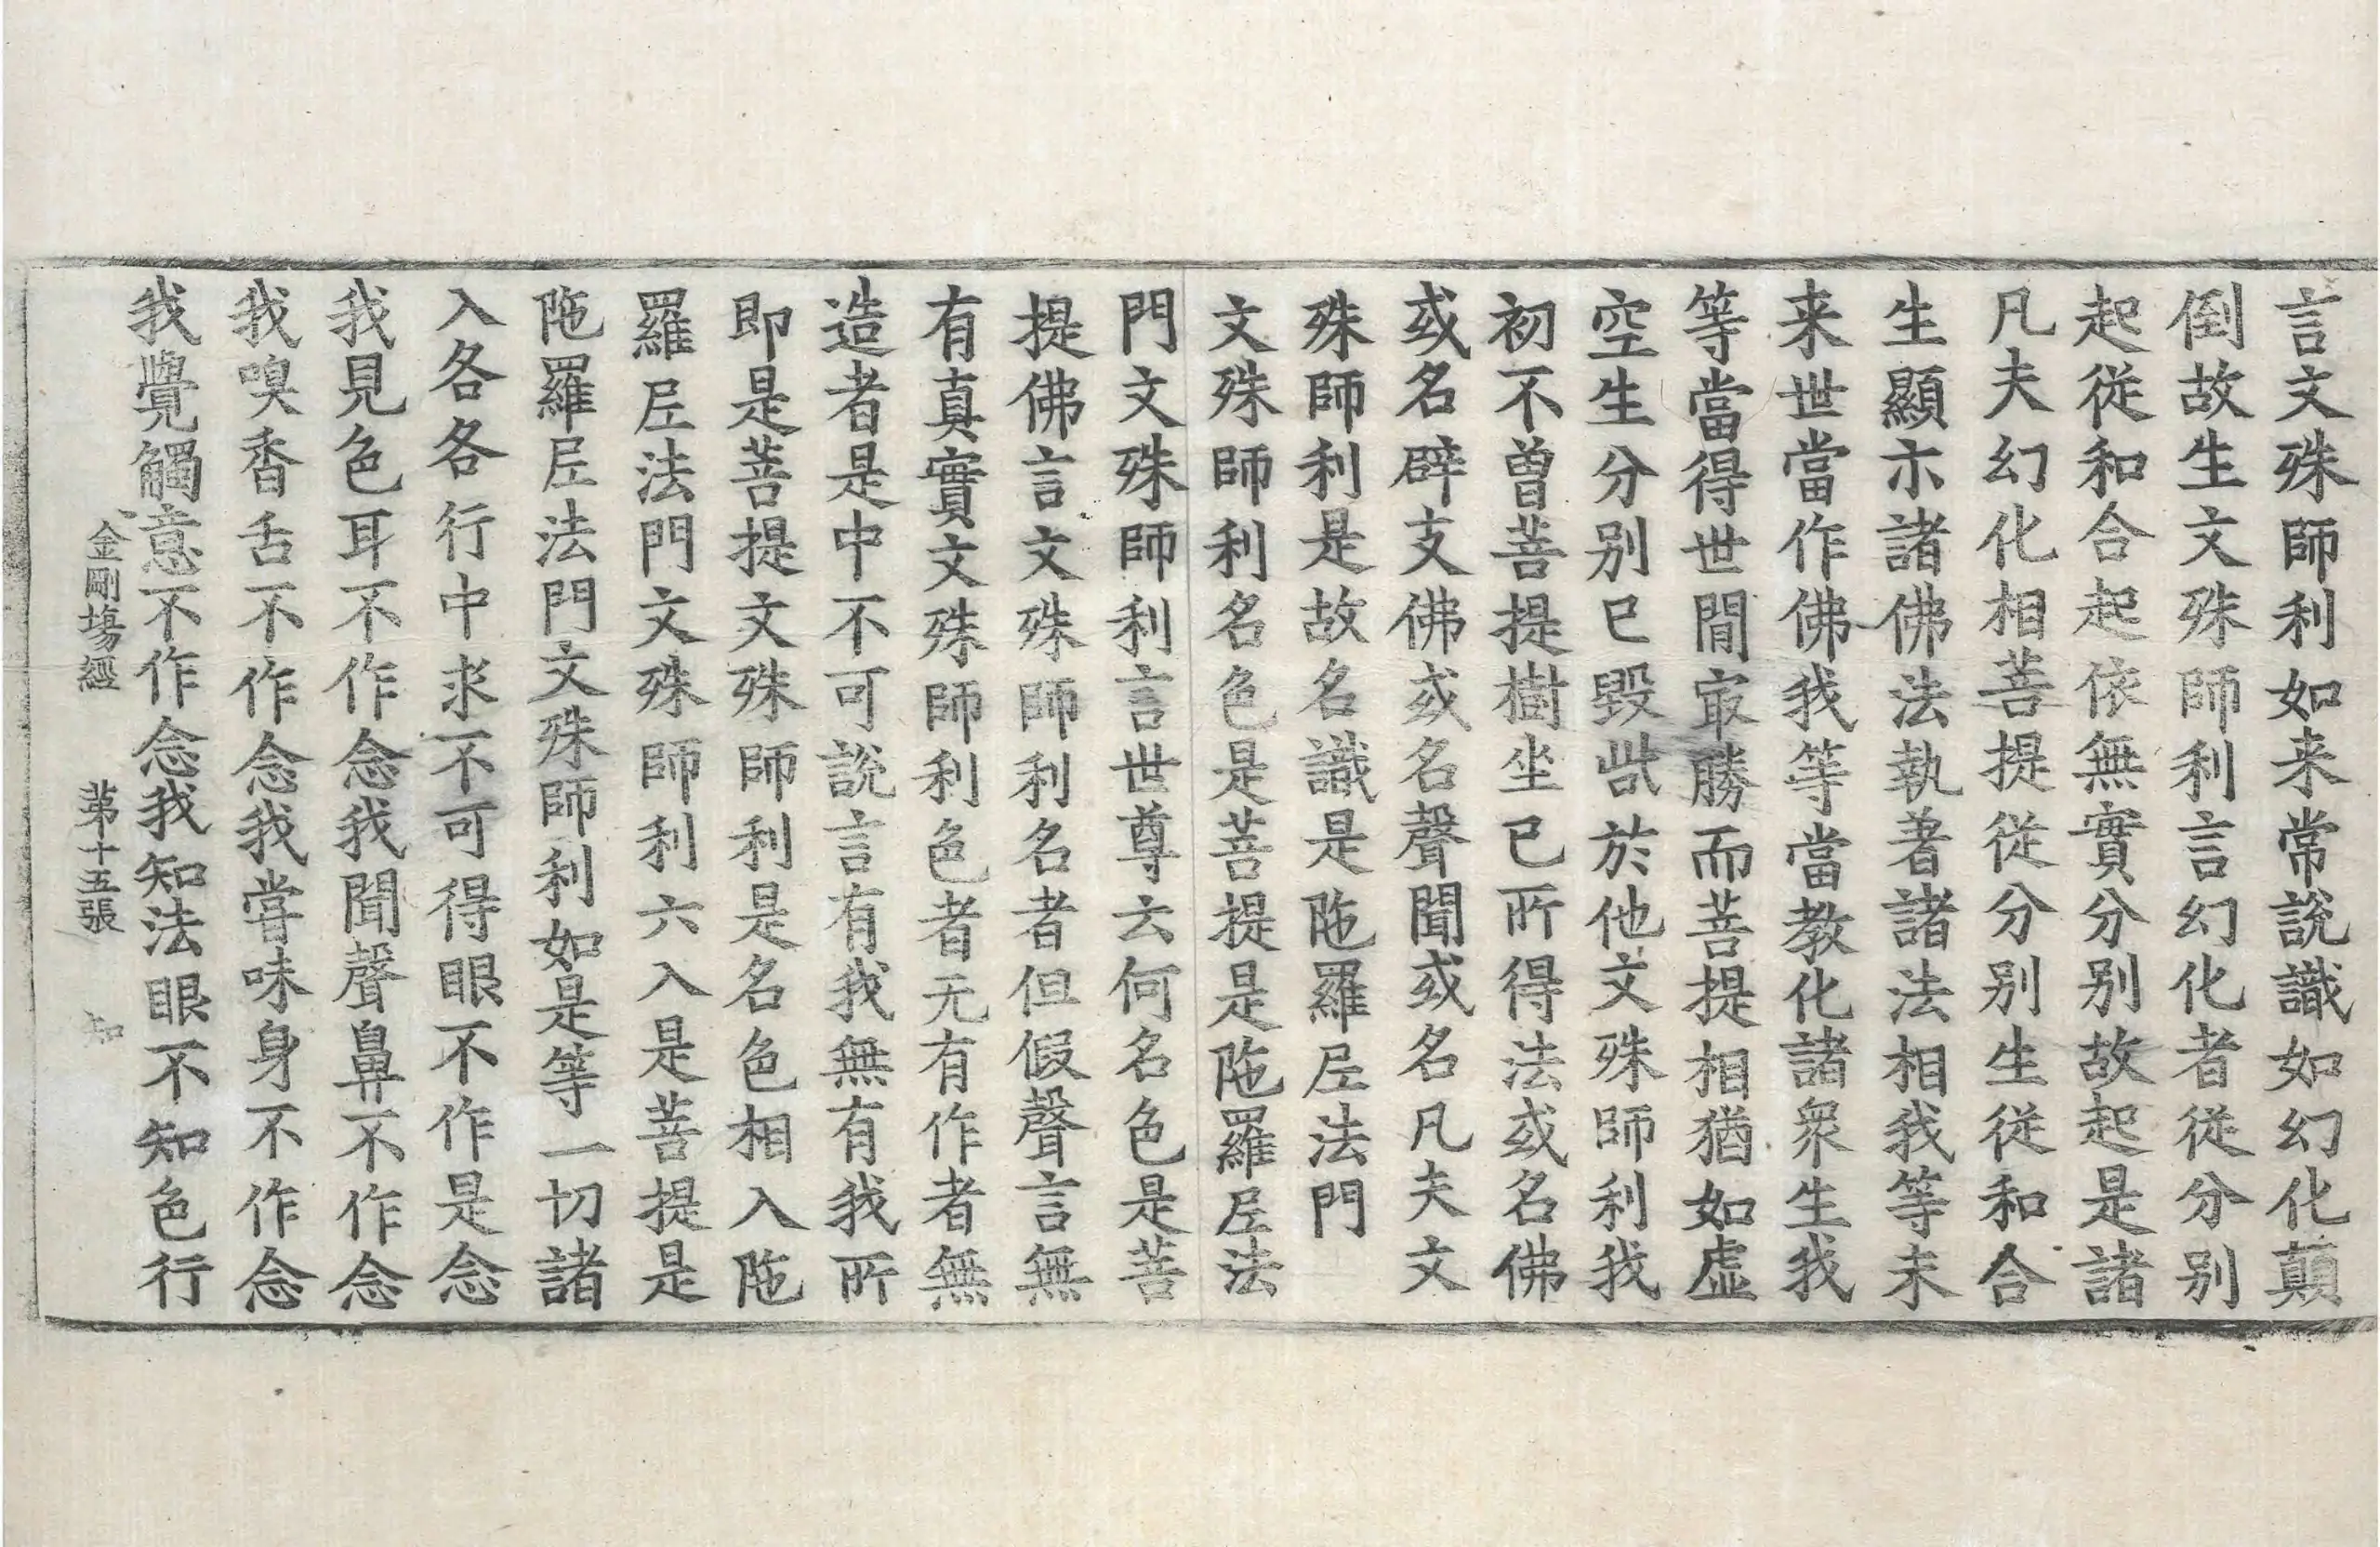 言文殊師利如来常說識如幻化顛
倒故生文殊師利言幻化者従分別
起従和合起依無實分別故起是諸
凡夫幻化相菩提従分別生従和合
生顯示諸佛法執著諸法相我等未
来世當作佛我等當教化諸衆生我
等當得世閒冣勝而菩提相猶如虛
空生分別已毀呰於他文殊師利我
初不曽菩提樹坐已所得法或名佛
或名辟支佛或名聲聞或名凡夫文
殊師利是故名識是陁羅𡰱法門
文殊師利名色是菩提是陁羅𡰱法
門文殊師利言世尊云何名色是菩
提佛言文殊師利名者但假聲言無
有真實文殊師利色者无有作者無
造者是中不可說言有我無有我所
即是菩提文殊師利是名色相入陁
羅𡰱法門文殊師利六入是菩提是
陁羅𡰱法門文殊師利如是等一切諸
入各各行中求不可得眼不作是念
我見色耳不作念我聞聲鼻不作念
我嗅香舌不作念我甞味身不作念
我覺觸意不作念我知法眼不知色行
金剛塲經 苐十五張 知